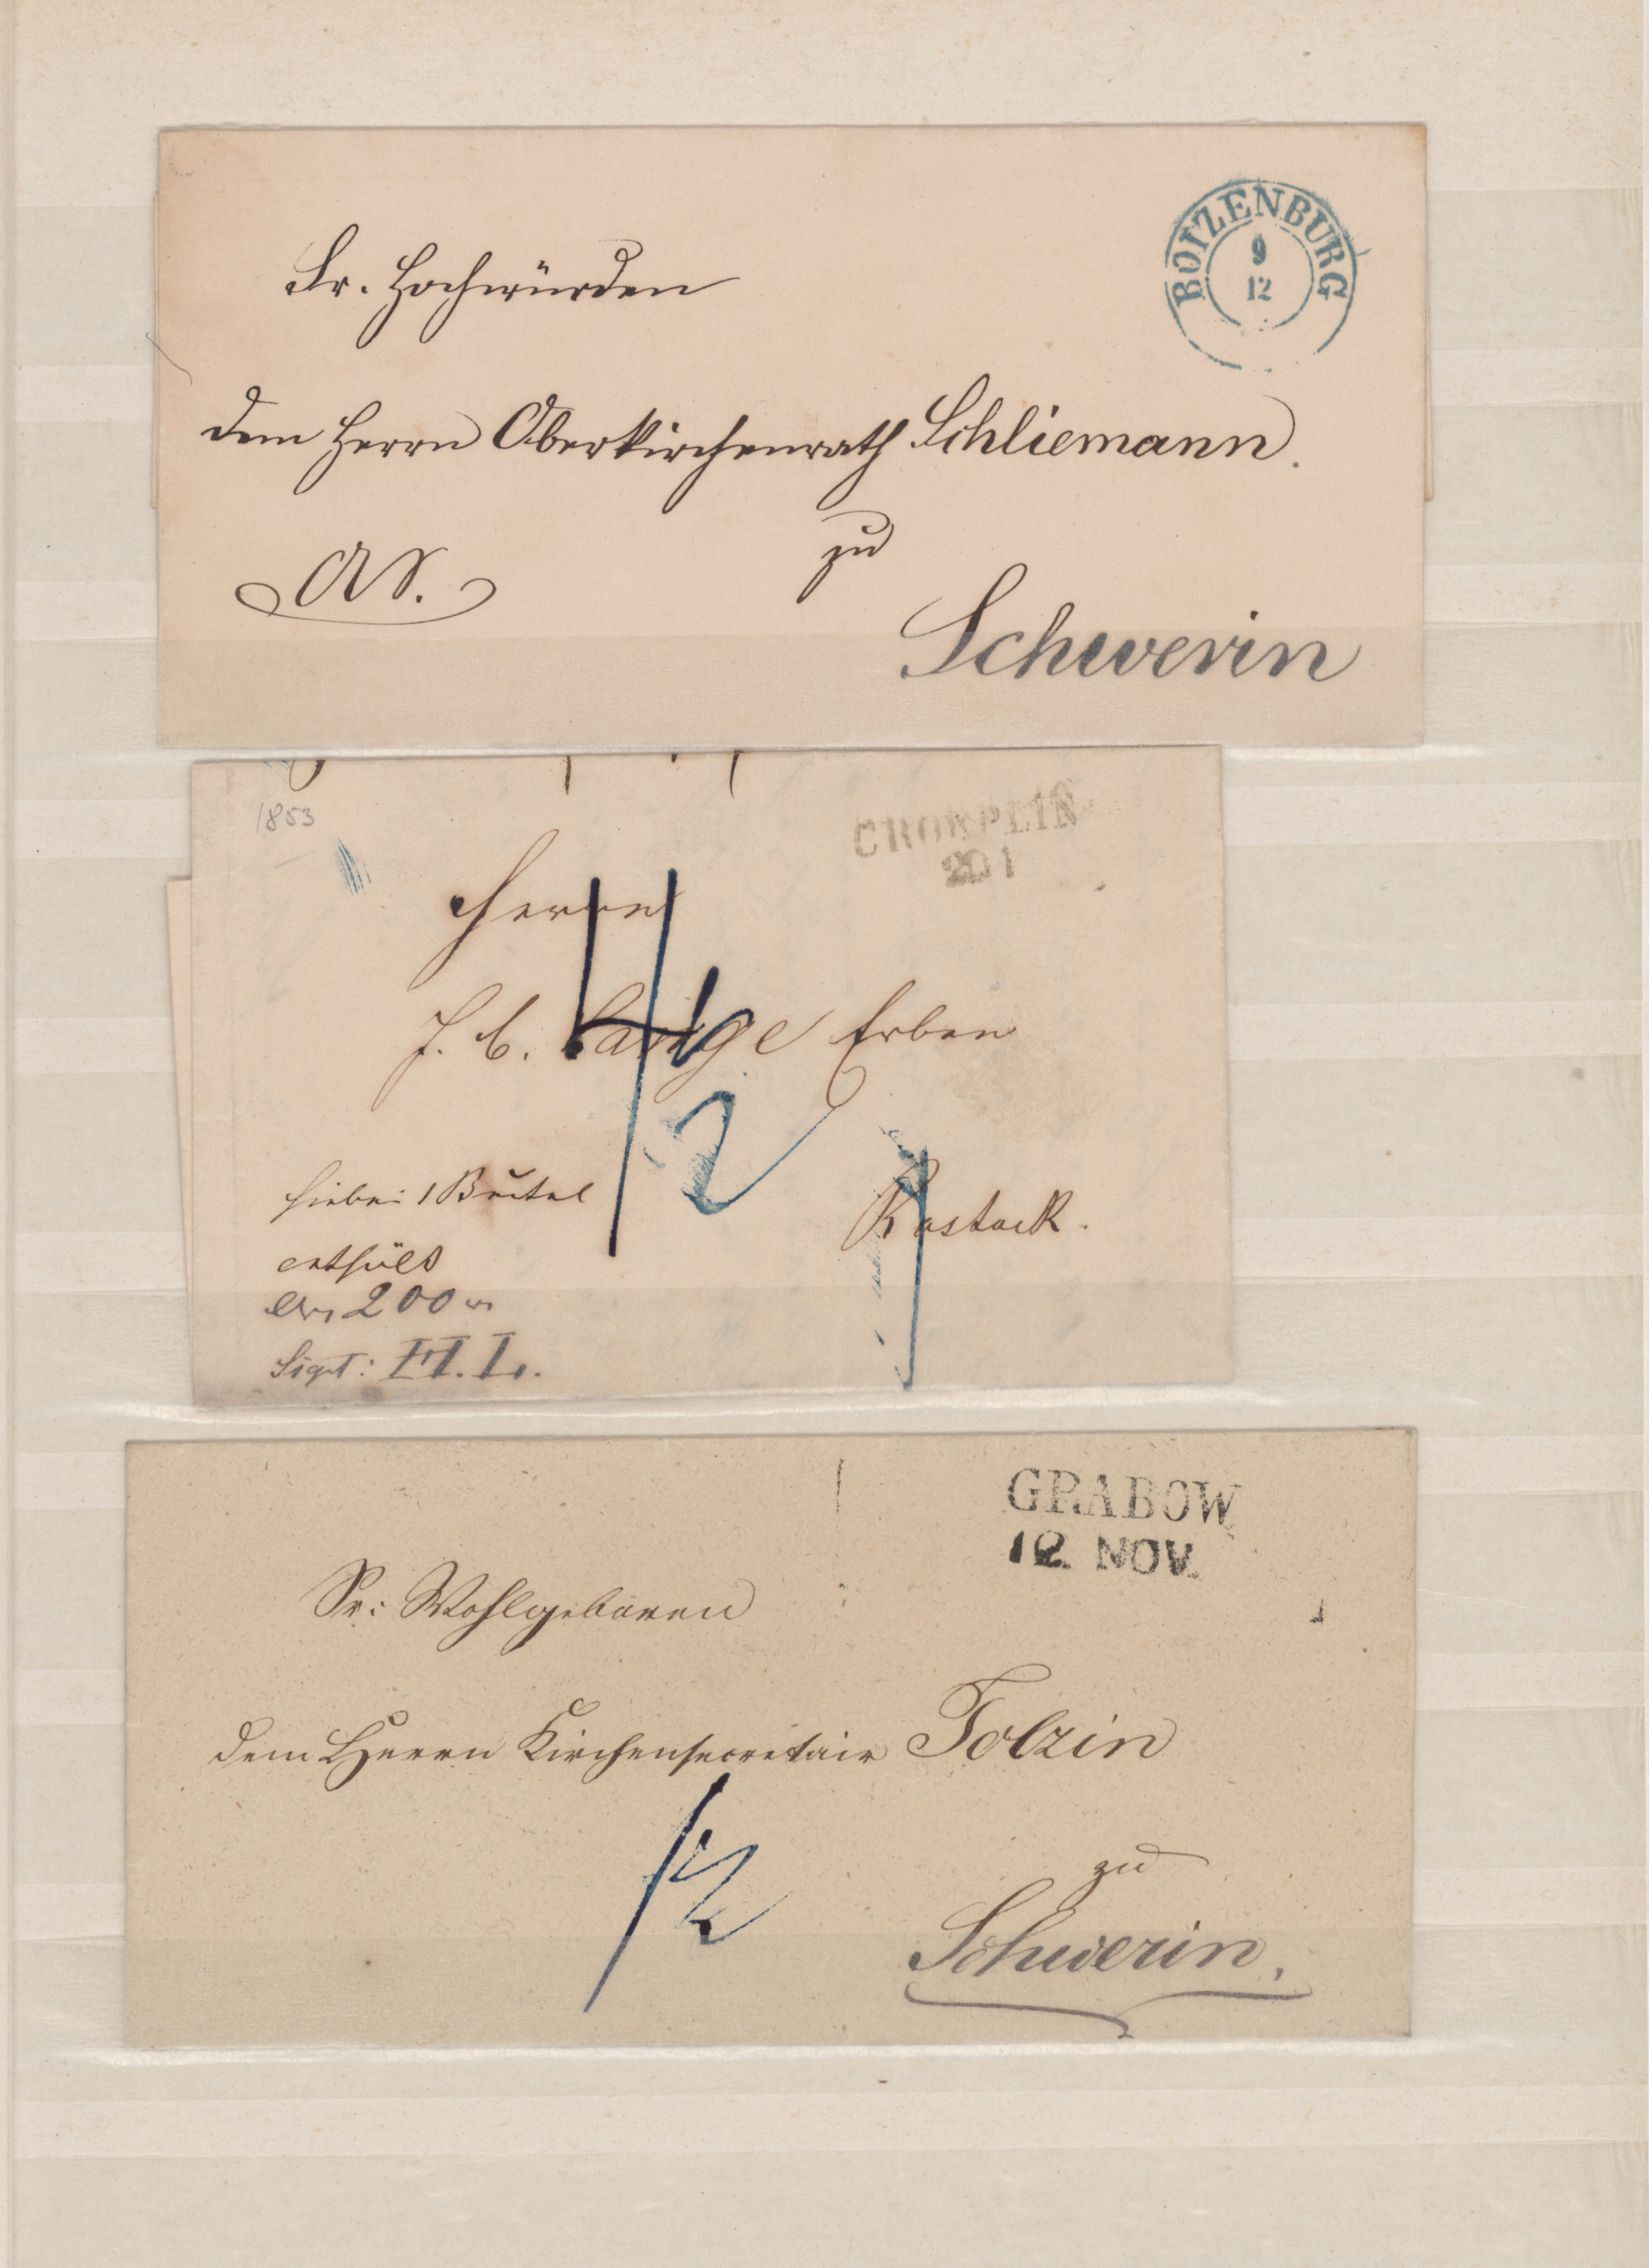 BOIZENBURG
9
12
Sr. Hochwürden
dem Herrn Oberkirchenrath Schliemann.
zu
Schwerin
1853
CRÖPELIN
20 1
Herren
J. C. Lange Erben
1/2
Rostock.
hiebei 1 Beutel
enthält
200
Sign: H. L.
GRABOW
12 NOV.
Sr: Wohlgeboren
dem Herrn Kirchensecretair Tolzin
1/2
zu
Schwerin.